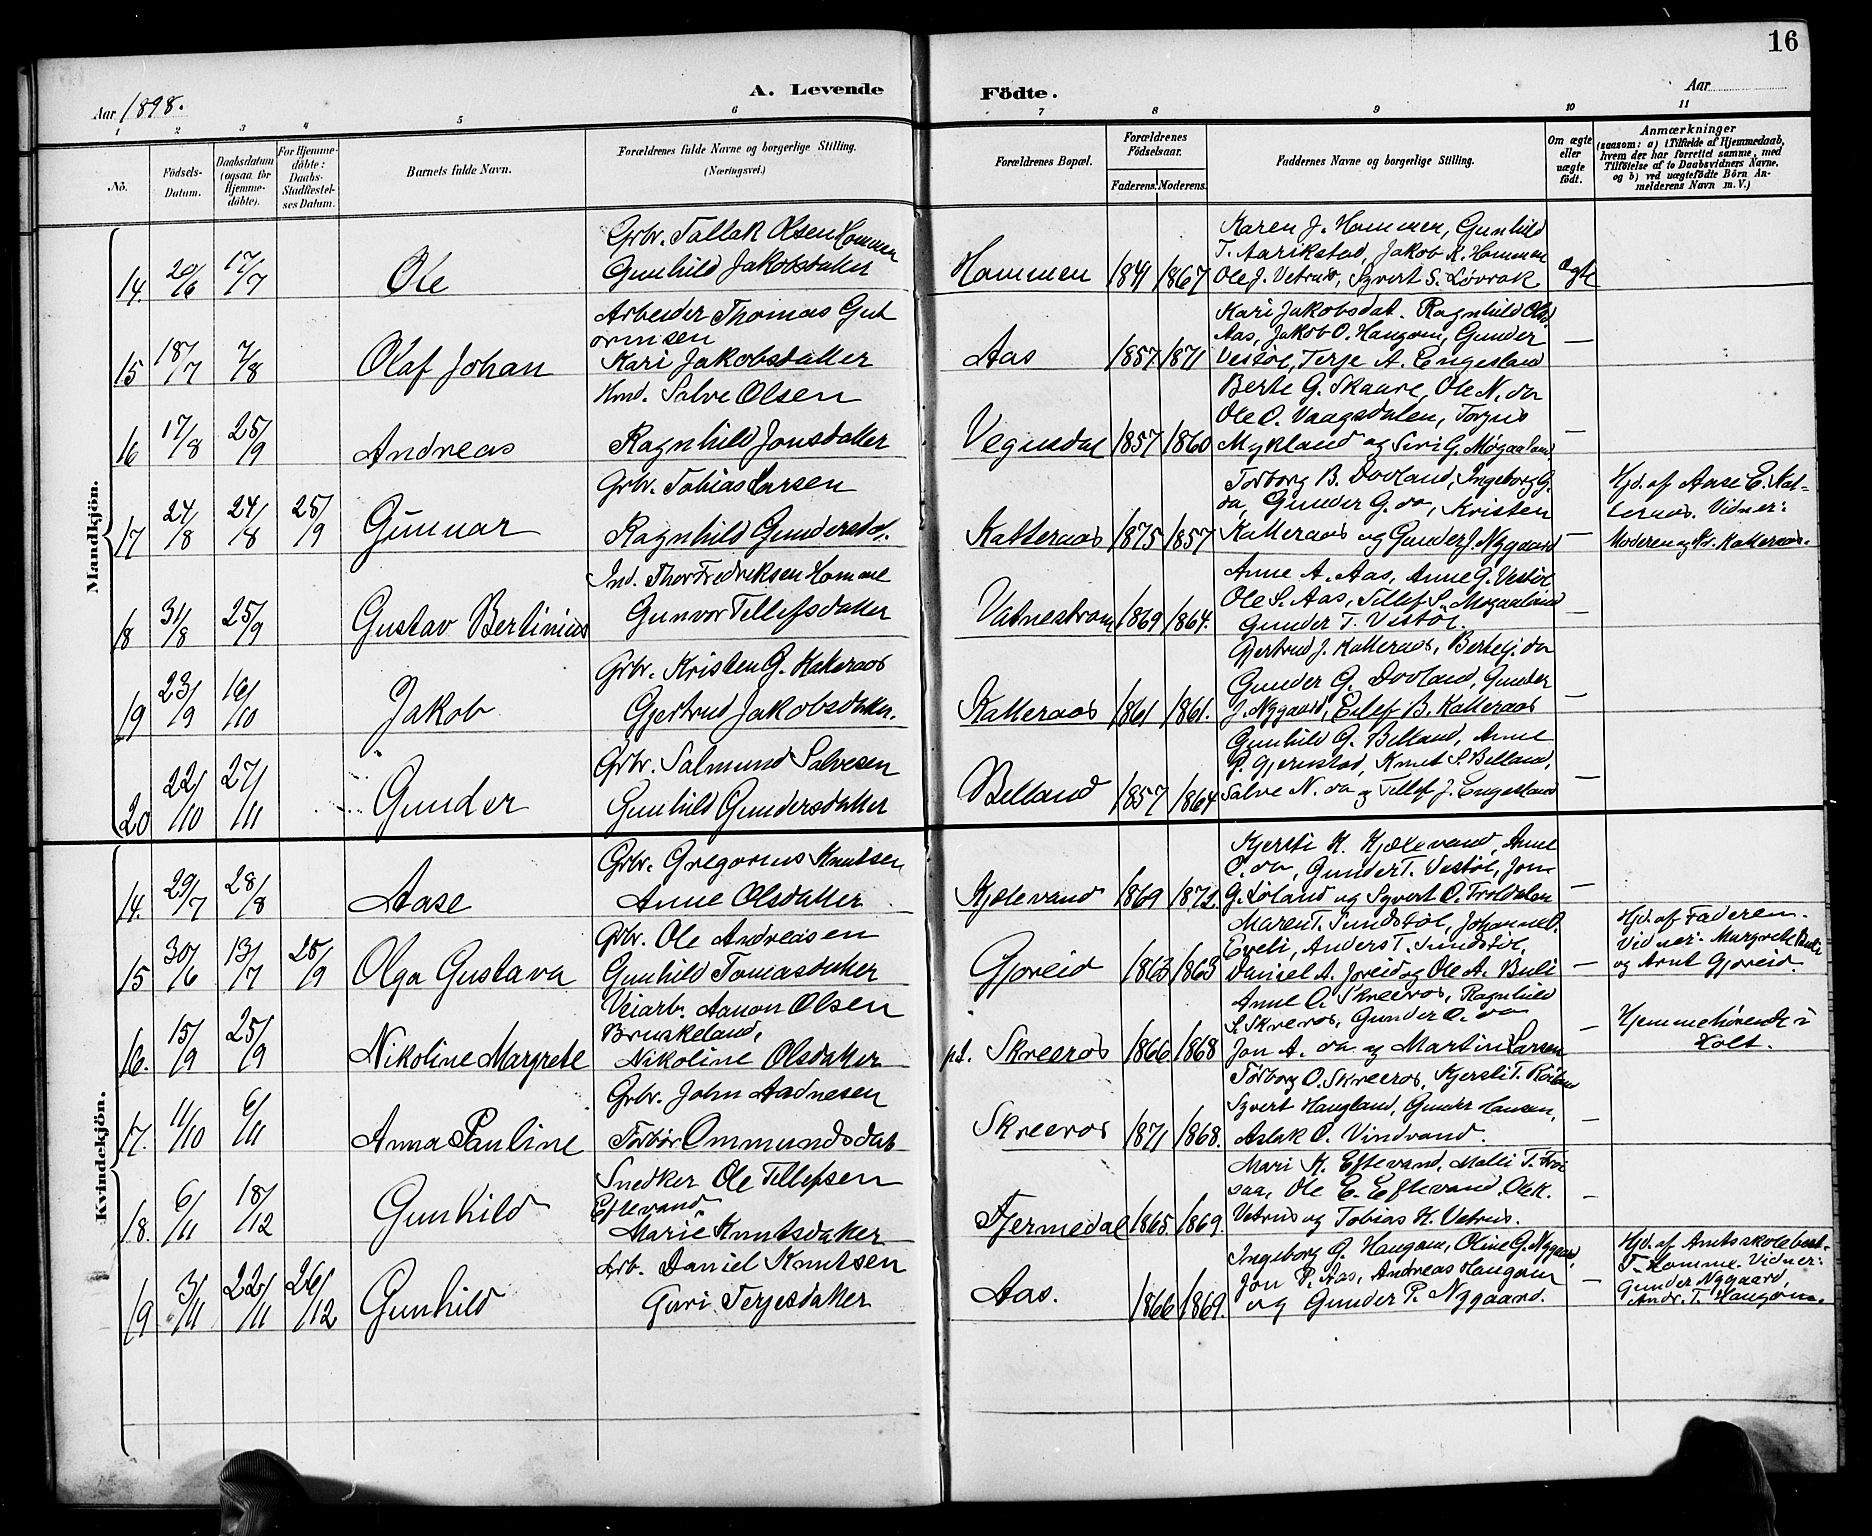 16
Aar 1898.
A. Levende
Födte.
Aar
1 2 3 4 5 6 7 8 9 10 11
No.
Födsels-Datum.
Daabsdatum (ogsaa for Hjemme-döbte).
For Hjemme-döbte: Daabs-Stadfæstel-ses Datum.
Barnets fulde Navn.
Forældrenes fulde Navne og borgerlige Stilling. (Næringsvei.)
Forældrenes Bopæl.
Forældrenes Födselsaar.
Faderens. Moderens.
Faddernes Navne og borgerlige Stilling.
Om ægte eller uægte födt.
Anmærkninger
(saasom: a) i Tilfælde af Hjemmedaab, hvem der har forrettet samme, med Tilföielse af to Daabsvidners Navne, og b) ved uægtefödte Börn An-melderens Navn m. V.)
Mandkjön.
14. 20/6 17/7 Ole
Grbr. Tallak Olsen Hommen
Gunhild Jakobsdatter
Hommen 1841 1867
Karen J. Hommen, Gunhild
T. Aarikstad, Jakob K. Hommen
Ole J. Vetrus, Syvert S. Løvrak
ægte
15 18/7 7/8 Olaf Johan
Arbeider Thomas Gut
ormsen
Kari Jakobsdatter
Aas 1857 1871
Kari Jakobsdat. Ragnhild Ols.
Aas, Jakob O. Haugom, Gunder
Vestøl, Terje A. Engesland
—
16 17/8 25/9 Andreas
Hmd. Salve Olsen
Ragnhild Jonsdatter
Vegusdal 1857 1860
Berte G. Skaare, Ole N. do
Ole O. Vaagsdalen, Torjus
Mykland og Siri G. Møgaaland
—
17 24/8 24/8 25/9 Gunnar
Grbr. Tobias Larsen
Ragnhild Gundersdat.
Katteraas 1875 1857
Torborg B. Dovland, Ingeborg G.
do, Gunder G. do, Kristen
Katteraas og Gunder J. Nygaard
—
Hjd. af Aase E. Kat-
teraas. Vidner:
Moderen og Kr. Katteraas.
18 31/8 25/9 Gustav Bertinius
Ind. Thor Fredriksen Homme
Gunvor Tellefsdatter
Vatnestrøm 1869 1864.
Anne A. Aas, Anne G. Vestøl
Ole S. Aas, Tellef S. Møgaaland
Gunder T. Vestøl.
—
19 23/9 16/10 Jakob
Grbr. Kristen G. Katteraas
Gjertrud Jakobsdatter.
Katteraas 1861 1861.
Gjertrud J. Katteraas, Berte G. do
Gunder G. Dovland, Gunder
J. Nygaard, Eilef B. Katteraas
—
20 22/10 27/11 Gunder
Grbr. Salmund Salvesen
Gunhild Gundersdatter
Belland 1857 1864
Gunhild G. Belland, Anne
P. Gjernstad, Knut S. Belland,
Salve N. do og Tellef J. Engesland
—
Kvindekjön.
14. 29/7 28/8 Aase
Grbr. Gregorius Knutsen
Anne Olsdatter
Kjelevand 1869 1872.
Kjersti K. Kjelevand, Anne
O. do, Gunder T. Vestøl, Jon
G. Loland og Syvert O. Troldalen
—
15 30/6 13/7 25/9 Olga Gustava
Grbr. Ole Andreasen
Gunhild Tomasdatter
Gjoreid 1863 1863
Maren T. Sundstøl, Johanne O.
Eveli, Anders T. Sundstøl,
Daniel A. Joreid og Ole A. Buli
—
Hjd. af Faderen.
Vidner: Margrete Buli
og Arnt Gjoreid.
16. 15/9 25/9 Nikoline Margrete
Veiarb. Aanon Olsen
Bruskeland,
Nikoline Olsdatter
pt. Skreeros 1866 1868
Anne O. Skreeros, Ragnhild
S. Skreeros, Gunder O. do
Jon A. do og Martin Larsen
—
Hjemmehørende i
Holt.
17. 11/10 6/11 Anna Pauline
Grbr. John Aadnesen
Torbor Ommundsdat
Skreeros 1871 1868.
Torborg O. Skreeros, Kjersti T. Røiland
Syvert Haugland, Gunder Hansen,
Aslak O. Vindvand.
—
18. 6/11 18/12 Gunhild
Snedker Ole Tellefsen
Eftevand
Marie Knutsdatter
Fjermedal 1865. 1869.
Mari K. Eftevand, Malli T. Froi
saa, Ole E. Eftevand, Ole K.
Vetrus og Tobias K. Vetrus.
—
19 3/11 22/11 26/12 Gunhild
Arb. Daniel Knutsen
Guri Terjesdatter
Aas. 1866 1869.
Ingeborg G. Haugom, Oline G. Nygaard,
Jon P. Aas, Andreas Haugom
og Gunder P. Nygaard.
—
Hjd. af Amtsskolebest.
T. Homme. Vidner:
Gunder Nygaard,
Andr. T. Haugom.